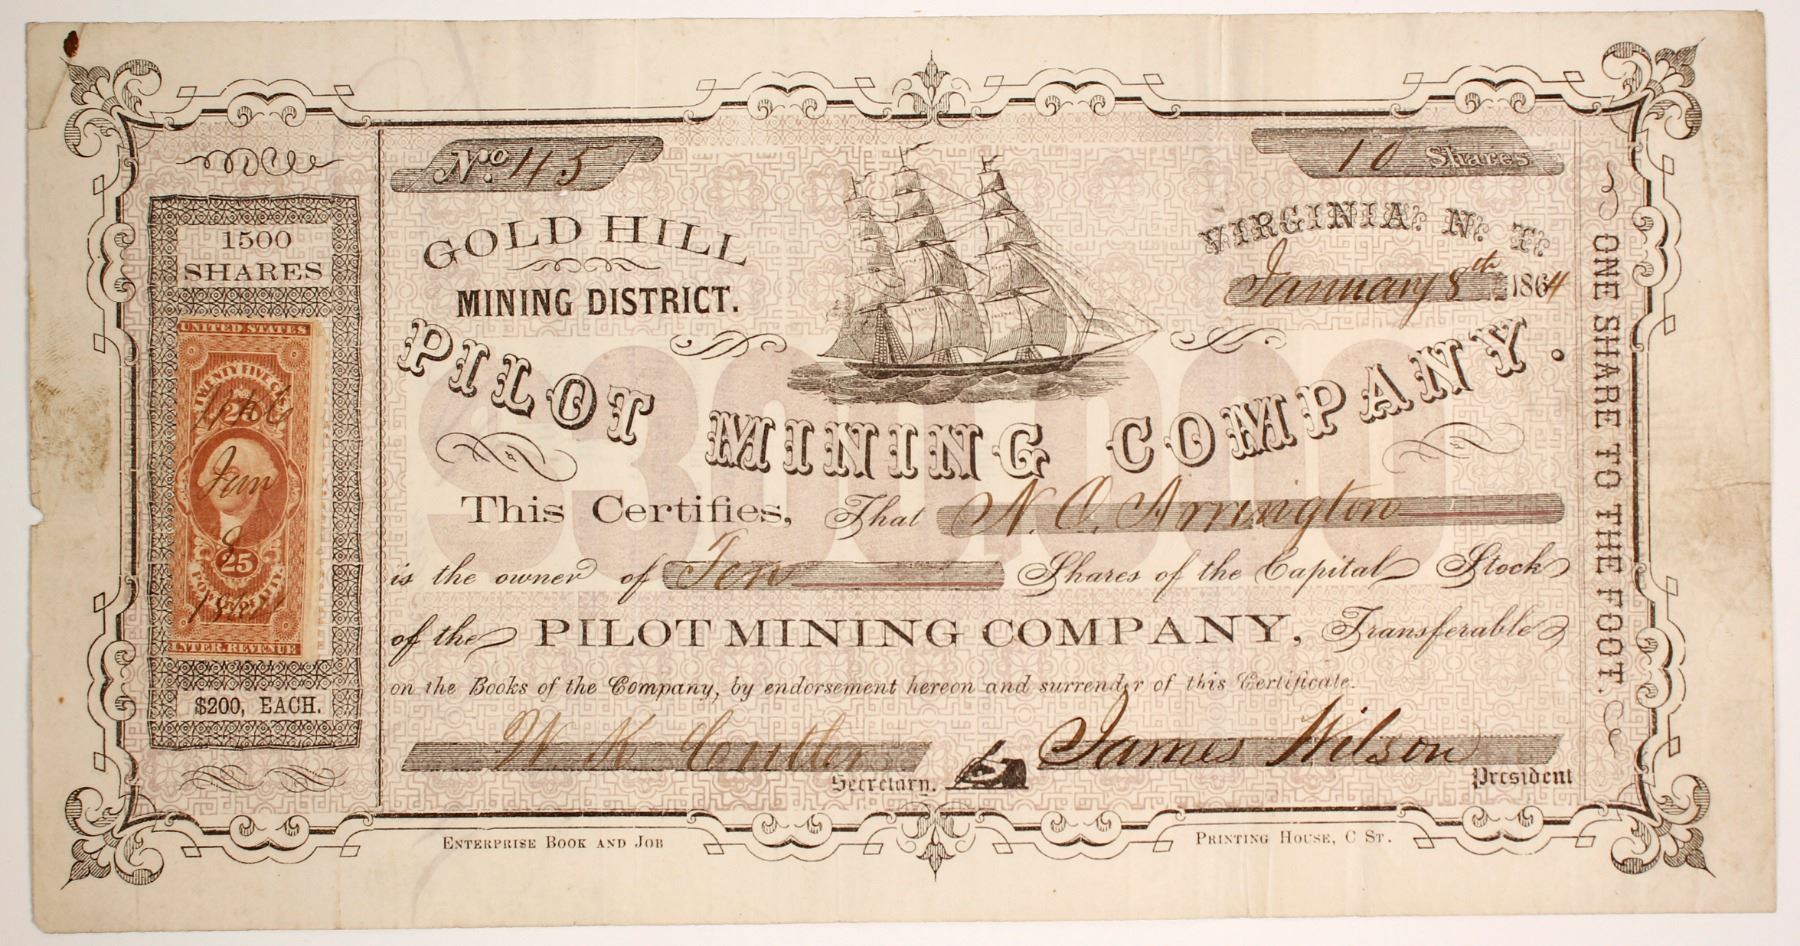 No. 45
10 Shares
GOLD HILL
MINING DISTRICT.
VIRGINIA: N: T:
January 8th 1864
PILOT MINING COMPANY.
$300,000
This Certifies, That N. O. Arrington
is the owner of Ten Shares of the Capital Stock
of the PILOT MINING COMPANY, Transferable
on the Books of the Company, by endorsement hereon and surrender of this Certificate.
W K Cutler
Secretary.
James Wilson
President
1500
SHARES
UNITED STATES
TWENTY FIVE CTS.
25
Jan
8
25
INTER. REVENUE
$200, EACH.
ONE SHARE TO THE FOOT.
ENTERPRISE BOOK AND JOB
PRINTING HOUSE, C ST.